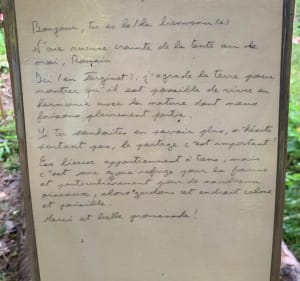 Bonjour, tu es le/la bienvenu(e)
N'aie aucune crainte de la tente ou de
moi, Romain
Ici (en Serginet), j'agrade la terre pour
montrer qu'il est possible de vivre en
harmonie avec la nature dont nous
faisons pleinement partie.
Si tu souhaites en savoir plus, n'hésite
surtout pas, le partage c'est important!
Ces lieux appartiennent à tous, mais
c'est une zone refuge pour la faune
et particulièrement pour de nombreux
oiseaux, alors gardons cet endroit calme
et paisible.
Merci et belle promenade!